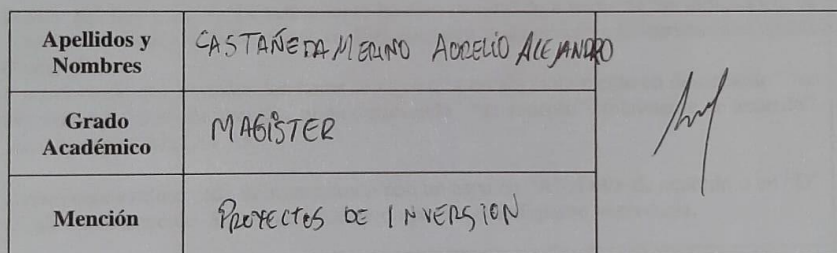 Apellidos y Nombres
CASTAÑEDA MERINO AURELIO ALEJANDRO
Grado Académico
MAGISTER
Mención
PROYECTOS DE INVERSION